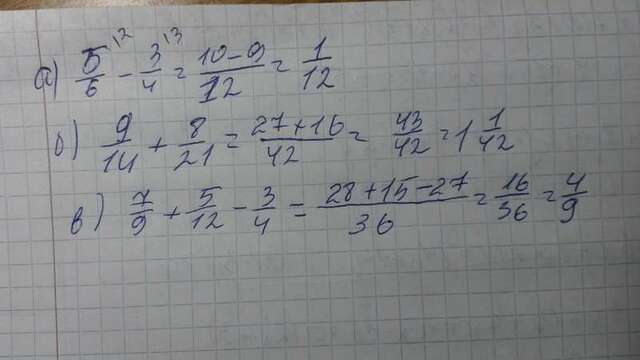 а) 5/6 \2 - 3/4 \3 = 10-9/12 = 1/12
б) 9/14 + 8/21 = 27+16/42 = 43/42 = 1 1/42
в) 7/9 + 5/12 - 3/4 = 28+15-27/36 = 16/36 = 4/9